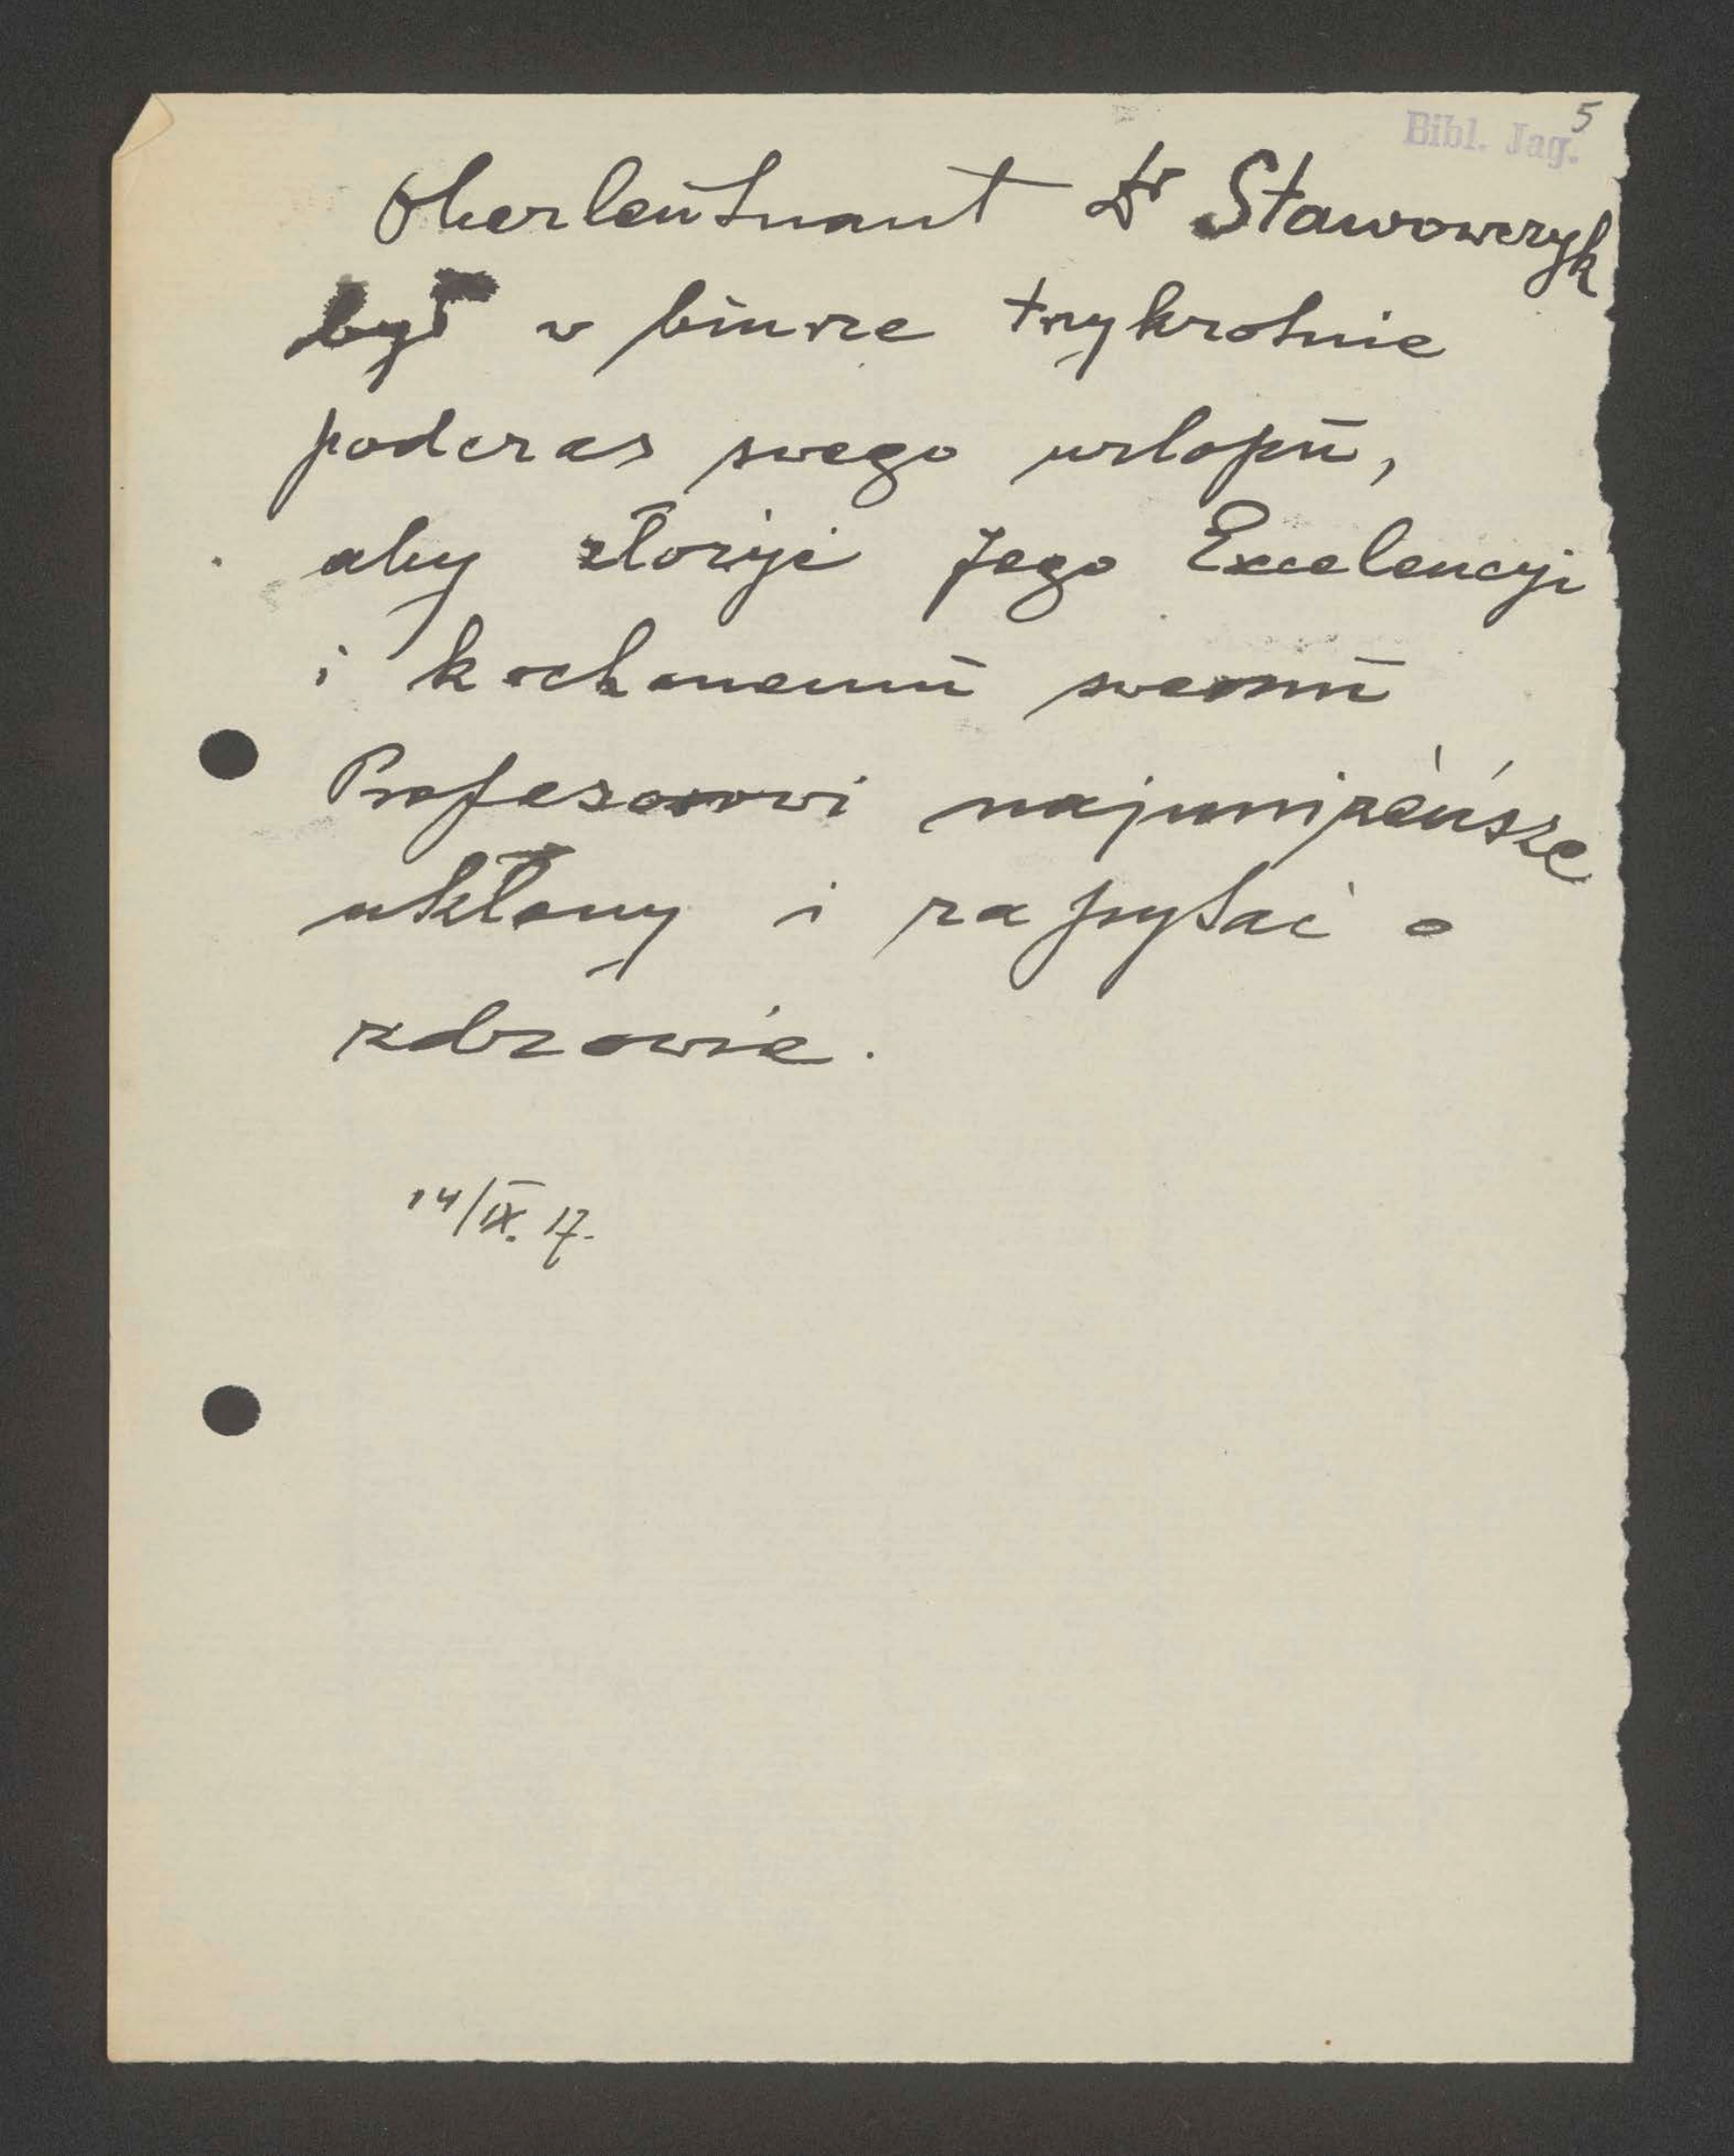 5
Bibl. Jag.
Oberleutnant Dr Stawowczyk
był w biurze trzykrotnie
podczas swego urlopu,
aby złożyć Jego Excelencyi
i kochanemu swemu
Profesorowi najuniżeńsze
ukłony i zapytać o
zdrowie.
14/IX. 17.